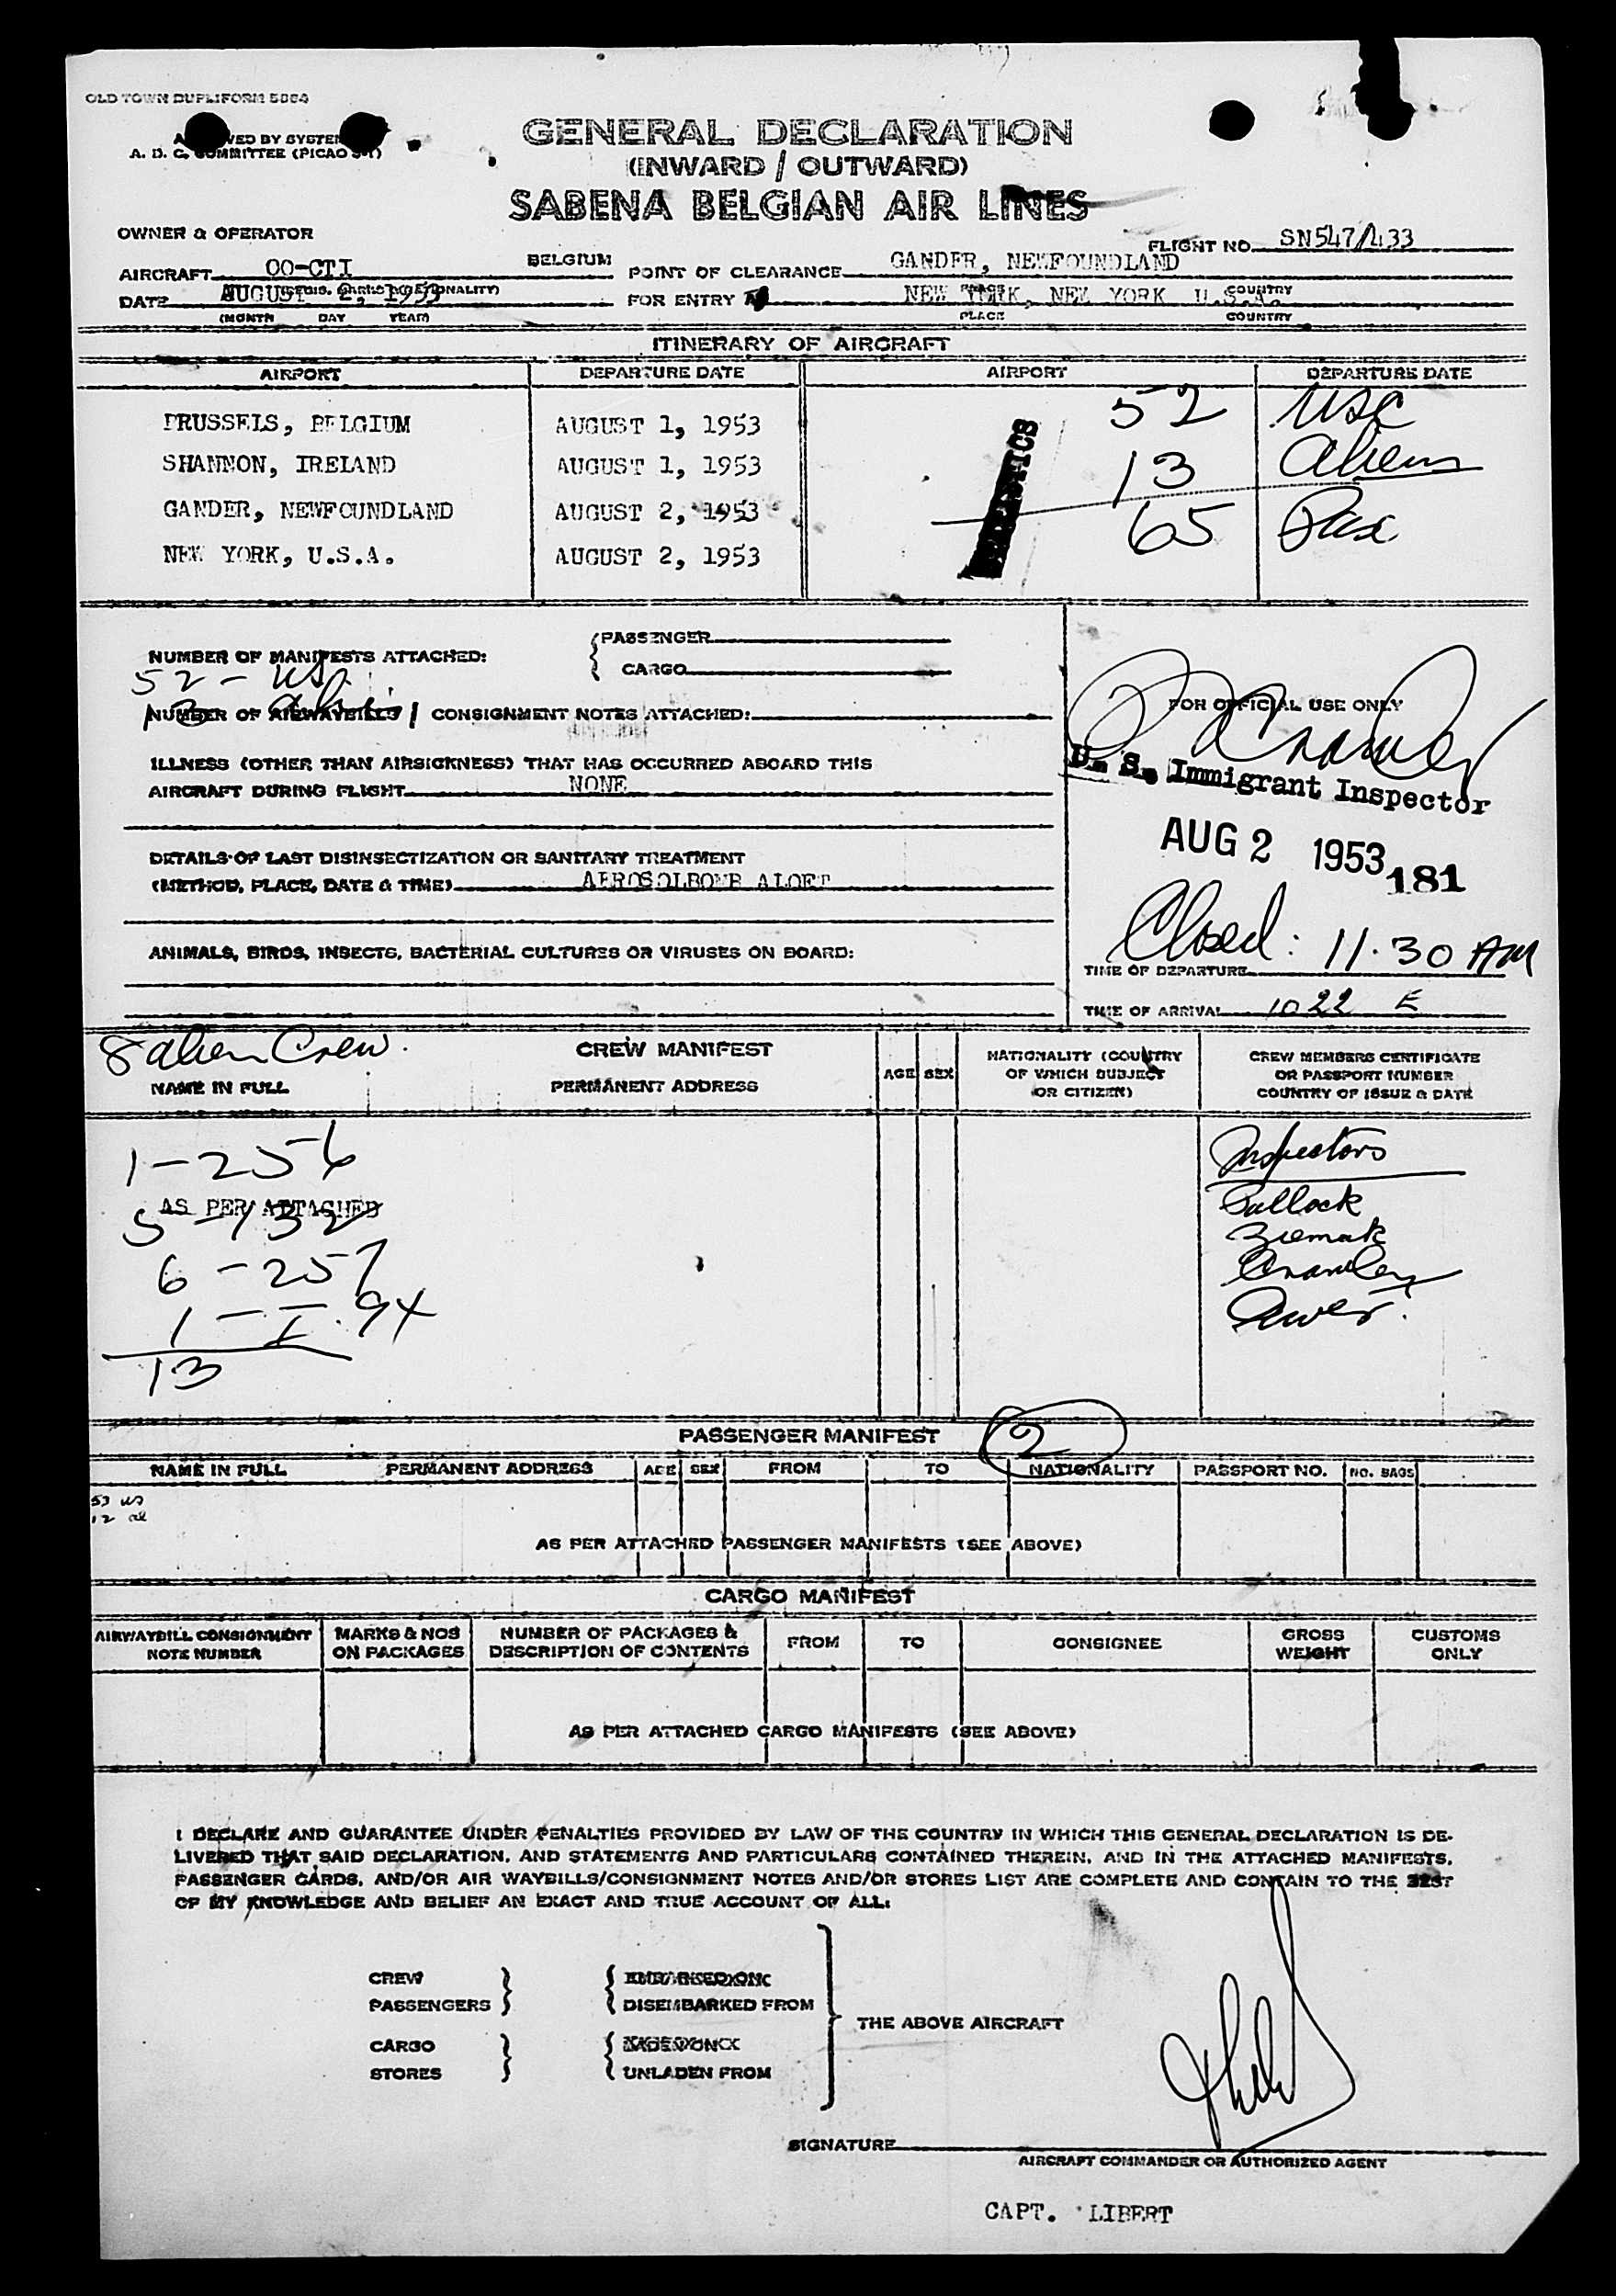 OLD TOWN DUPLIFORM
GENERAL DECLARATION
(INWARD / OUTWARD)
SABENA BELGIAN AIR LINES
OWNER & OPERATOR
FLIGHT NO. SN547/433
AIRCRAFT OO-CTI BELGIUM POINT OF CLEARANCE GANDER, NEWFOUNDLAND
DATE AUGUST 2, 1953 FOR ENTRY NEW YORK, NEW YORK U.S.A.
(MONTH DAY YEAR) PLACE COUNTRY
ITINERARY OF AIRCRAFT
AIRPORT DEPARTURE DATE AIRPORT DEPARTURE DATE
BRUSSELS, BELGIUM AUGUST 1, 1953 52 USC
SHANNON, IRELAND AUGUST 1, 1953 13 Aliens
GANDER, NEWFOUNDLAND AUGUST 2, 1953 65 Pax
NEW YORK, U.S.A. AUGUST 2, 1953
NUMBER OF MANIFESTS ATTACHED: PASSENGER
CARGO
52 - US
NUMBER OF AIRWAYBILLS / CONSIGNMENT NOTES ATTACHED:
FOR OFFICIAL USE ONLY
ILLNESS (OTHER THAN AIRSICKNESS) THAT HAS OCCURRED ABOARD THIS
AIRCRAFT DURING FLIGHT NONE
U. S. Immigrant Inspector
AUG 2 1953 181
DETAILS OF LAST DISINSECTIZATION OR SANITARY TREATMENT
(METHOD, PLACE, DATE & TIME) AEROSOLBOMB ALOFT
ANIMALS, BIRDS, INSECTS, BACTERIAL CULTURES OR VIRUSES ON BOARD:
Closed: 11.30 AM
TIME OF DEPARTURE
TIME OF ARRIVAL 1022 E
8 alien Crew.
CREW MANIFEST
NAME IN FULL PERMANENT ADDRESS AGE SEX NATIONALITY (COUNTRY OF WHICH SUBJECT OR CITIZEN) CREW MEMBERS CERTIFICATE OR PASSPORT NUMBER COUNTRY OF ISSUE & DATE
1 - 256 Inspectors
AS PER ATTACHED
5 - 132 
6 - 257
1 - I.94
13
PASSENGER MANIFEST 2
NAME IN FULL PERMANENT ADDRESS AGE SEX FROM TO NATIONALITY PASSPORT NO. NO. BAGS
53 us
12 al
AS PER ATTACHED PASSENGER MANIFESTS (SEE ABOVE)
CARGO MANIFEST
AIRWAYBILL CONSIGNMENT NOTE NUMBER MARKS & NOS ON PACKAGES NUMBER OF PACKAGES & DESCRIPTION OF CONTENTS FROM TO CONSIGNEE GROSS WEIGHT CUSTOMS ONLY
AS PER ATTACHED CARGO MANIFESTS (SEE ABOVE)
I DECLARE AND GUARANTEE UNDER PENALTIES PROVIDED BY LAW OF THE COUNTRY IN WHICH THIS GENERAL DECLARATION IS DE-
LIVERED THAT SAID DECLARATION, AND STATEMENTS AND PARTICULARS CONTAINED THEREIN, AND IN THE ATTACHED MANIFESTS,
PASSENGER CARDS, AND/OR AIR WAYBILLS/CONSIGNMENT NOTES AND/OR STORES LIST ARE COMPLETE AND CONTAIN TO THE BEST
OF MY KNOWLEDGE AND BELIEF AN EXACT AND TRUE ACCOUNT OF ALL:
CREW
PASSENGERS DISEMBARKED FROM
THE ABOVE AIRCRAFT
CARGO
STORES UNLADEN FROM
SIGNATURE
AIRCRAFT COMMANDER OR AUTHORIZED AGENT
CAPT. LIBERT